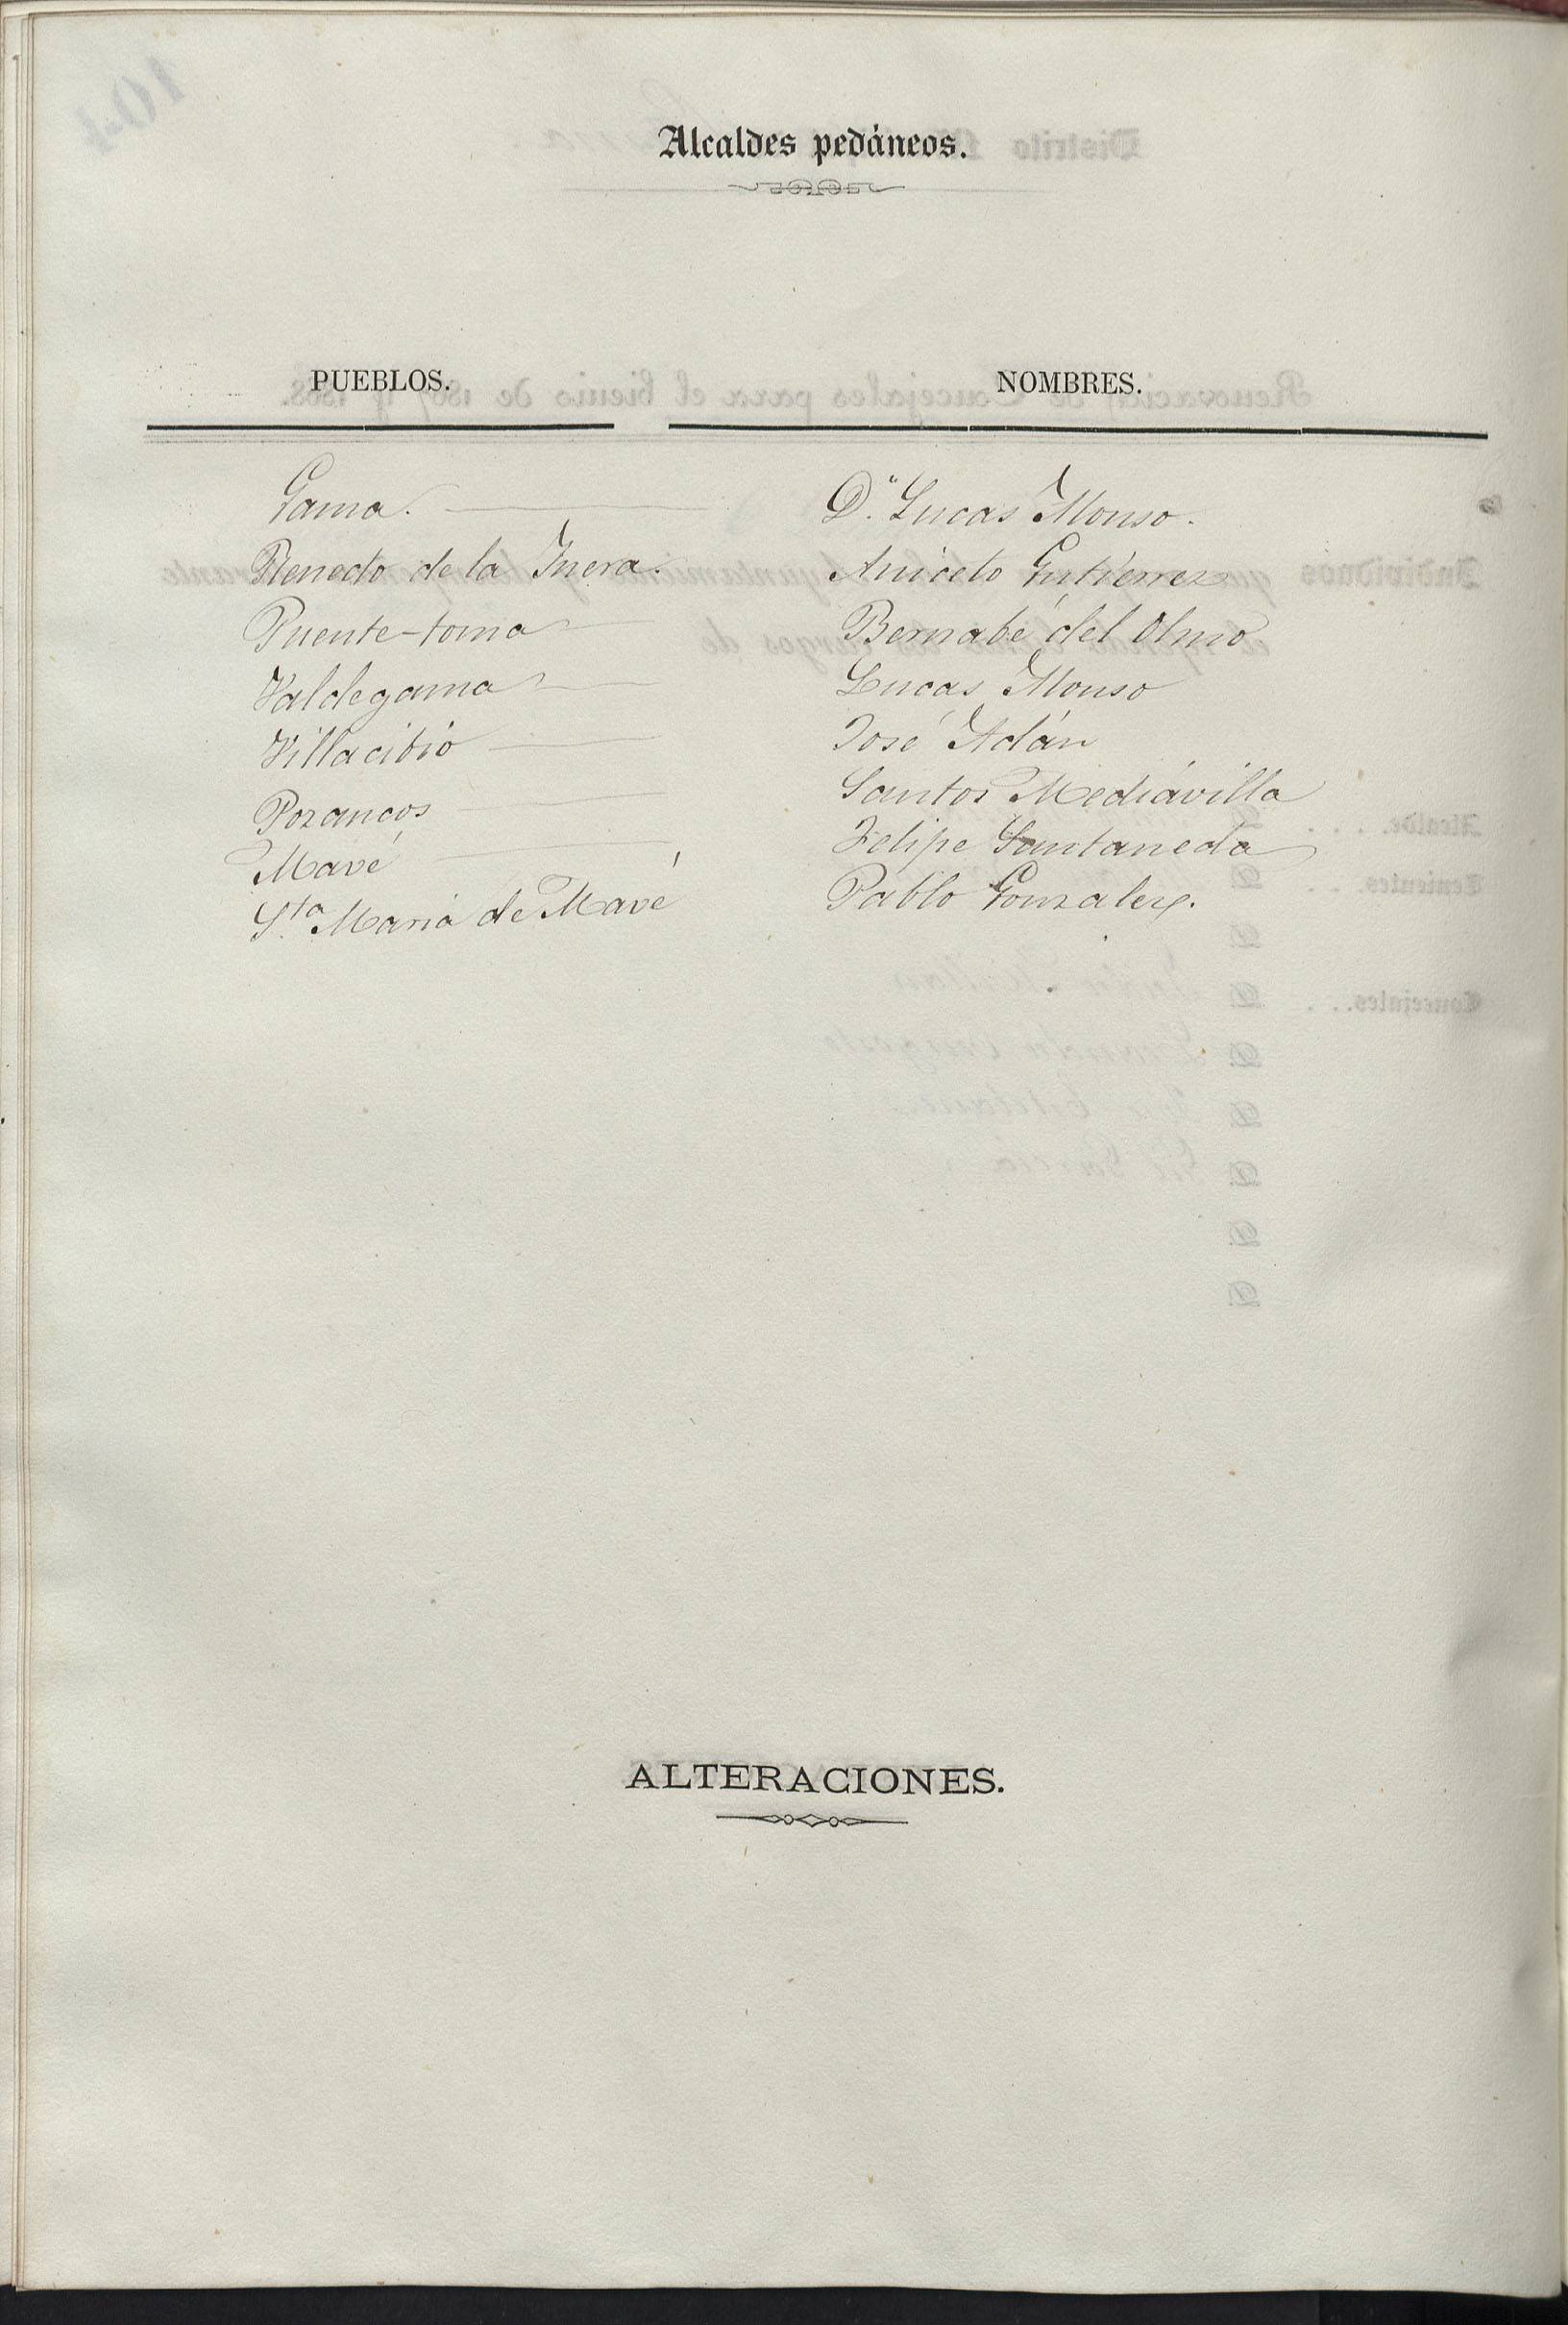 Alcaldes pedáneos.
PUEBLOS. NOMBRES.
Gama. D.n Lucas Alonso.
Renedo de la Inera. Aniceto Gutierrez
Puente-toma Bernabé del Olmo
Valdegama Lucas Alonso
Villacibio José Adán
Pozancos Santos Mediavilla
Mavé Felipe Santaneda
Sta. Maria de Mavé Pablo Gonzalez.
ALTERACIONES.